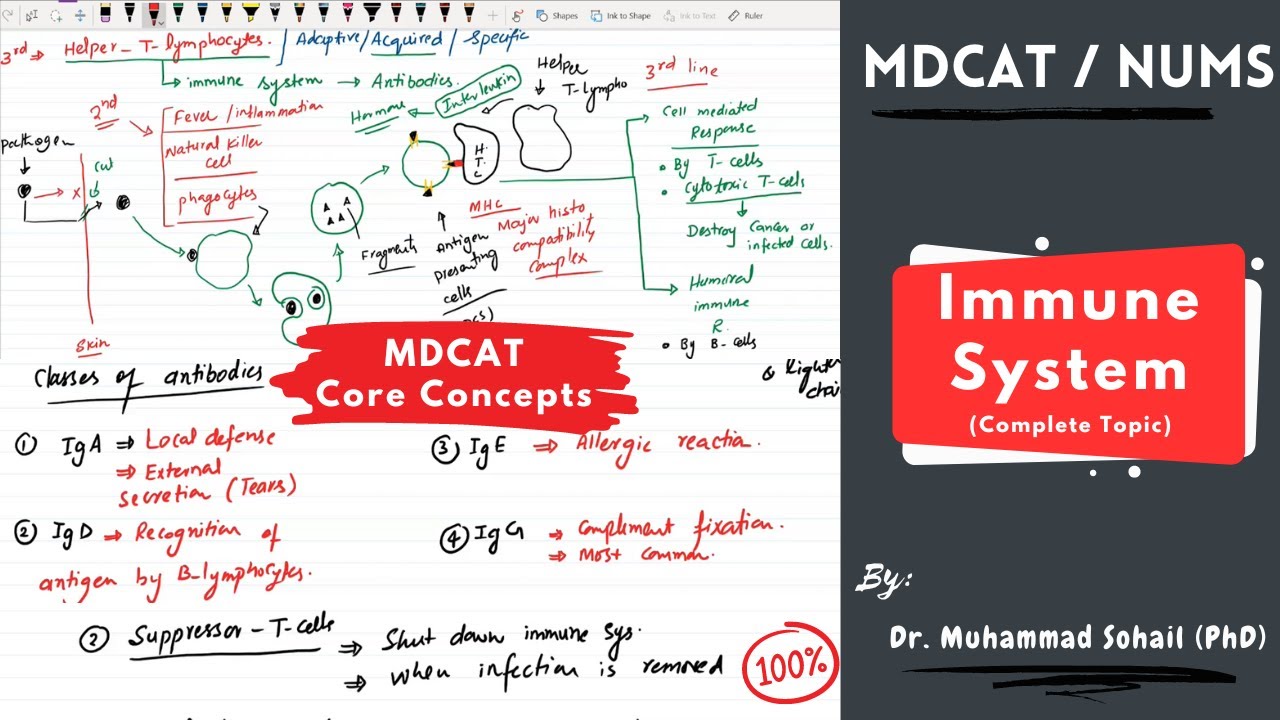 Shapes Ink to Shape Ink to Text Ruler
3rd ⇒ Helper - T - lymphocytes. / Adaptive/Acquired / Specific
→ immune system → Antibodies.
2nd
Fever / inflammation
Natural Killer
cell
phagocytes
pathogen
cut
x
Skin
Fragments
Hormone ← Interleukin
H.
T.
C
Antigen
presenting
cells
MHC
Major histo
compatibility
complex
Helper
T-lympho
3rd line
Cell mediated
Response
• By T-cells
• Cytotoxic T-cells
Destroy Cancer or
infected cells.
Humoral
immune
R.
• By B-cells
MDCAT
Core Concepts
Classes of antibodies
① IgA ⇒ Local defense
⇒ External
secretion (Tears)
② IgD → Recognition of
antigen by B-lymphocytes.
③ IgE ⇒ Allergic reaction.
④ IgG ⇒ Complement fixation.
⇒ Most common.
② Suppressor - T-cells ⇒ Shut down immune sys.
⇒ when infection is removed
100%
MDCAT / NUMS
Immune
System
(Complete Topic)
By:
Dr. Muhammad Sohail (PhD)